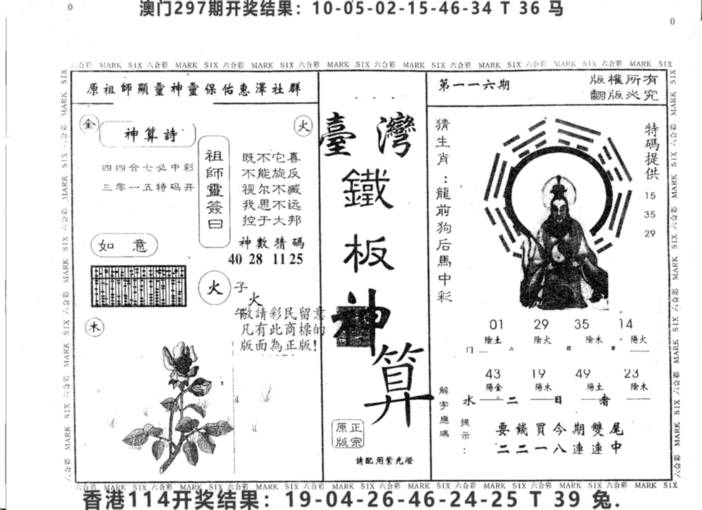 澳门297期开奖结果：10-05-02-15-46-34 T 36 马
0
0
六合彩 MARK SIX 六合彩 MARK SIX 六合彩 MARK SIX 六合彩 MARK SIX 六合彩 MARK SIX 六合彩 MARK SIX
原祖師顯靈神靈保佑惠澤社群
金
神算詩
火
四四合七必中彩
三零一五特码开
祖師靈簽曰
既不它喜
不能旋反
视尔不臧
我思不远
控于大邦
神數猜碼
40 28 11 25
如意
火
子
火
午
敬請彩民留意
凡有此商標的
版面為正版!
木
臺灣
鐵
板
神
算
原正
版宗
請配用紫光燈
第一一六期
版權所有
翻版必究
猜生肖：龍前狗后馬中彩
特碼提供
15
35
29
01 29 35 14
陰土 陰火 陰木 陽火
43 19 49 23
陽金 陽木 陽土 陰木
水二日者
解字應碼
提示：
要錢買今期雙尾
二二一八連連中
六合彩 MARK SIX 六合彩 MARK SIX 六合彩 MARK SIX 六合彩 MARK SIX 六合彩 MARK SIX 六合彩 MARK SIX
香港114开奖结果：19-04-26-46-24-25 T 39 兔.